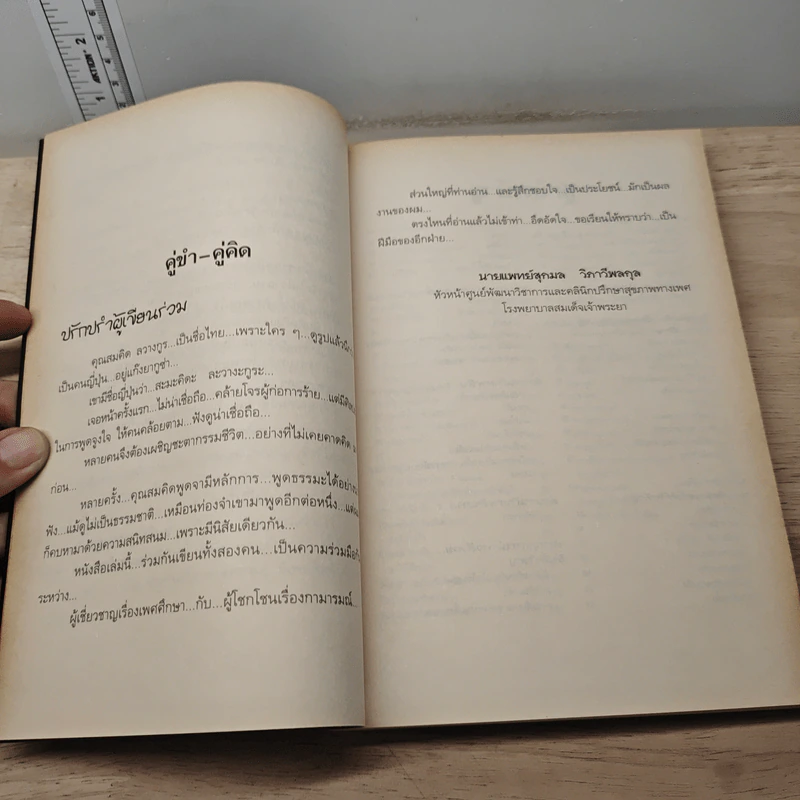 คู่ขำ-คู่คิด
ปรักปรำผู้เขียนร่วม
คุณสมคิด ลวางกูร...เป็นชื่อไทย...เพราะใคร ๆ ...ดูรูปแล้ว
เป็นคนญี่ปุ่น...อยู่แก๊งยากูซ่า...
เขามีชื่อญี่ปุ่นว่า...สะมะคิตะ ละวางะกูระ...
เจอหน้าครั้งแรก...ไม่น่าเชื่อถือ...คล้ายโจรผู้ก่อการร้าย...แต่มี
ในการพูดจูงใจ ให้คนคล้อยตาม...ฟังดูน่าเชื่อถือ...
หลายคนจึงต้องเผชิญชะตากรรมชีวิต...อย่างที่ไม่เคยคาดคิด
ก่อน...
หลายครั้ง...คุณสมคิดพูดจามีหลักการ...พูดธรรมะได้อย่าง
ฟัง...แม้ดูไม่เป็นธรรมชาติ...เหมือนท่องจำเขามาพูดอีกต่อหนึ่ง...
ก็คบหามาด้วยความสนิทสนม...เพราะมีนิสัยเดียวกัน...
หนังสือเล่มนี้...ร่วมกันเขียนทั้งสองคน...เป็นความร่วมมือ
ระหว่าง...
ผู้เชี่ยวชาญเรื่องเพศศึกษา...กับ...ผู้โชกโชนเรื่องกามารมณ์...
ส่วนใหญ่ที่ท่านอ่าน...และรู้สึกชอบใจ...เป็นประโยชน์...มักเป็นผล
งานของผม...
ตรงไหนที่อ่านแล้วไม่เข้าท่า...อึดอัดใจ...ขอเรียนให้ทราบว่า...เป็น
ฝีมือของอีกฝ่าย...
นายแพทย์สุกมล วิภาวีพลกุล
หัวหน้าศูนย์พัฒนาวิชาการและคลินิกปรึกษาสุขภาพทางเพศ
โรงพยาบาลสมเด็จเจ้าพระยา